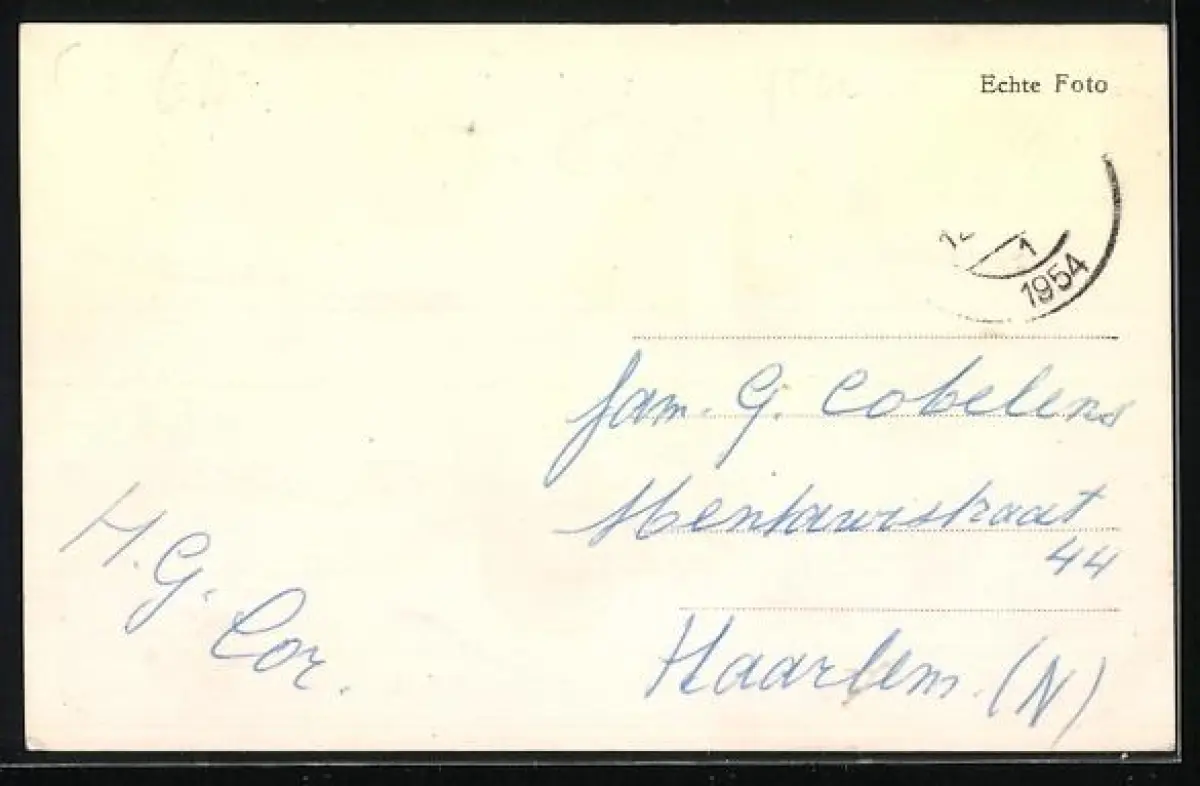 Echte Foto
1
1954
fam. G. Cobelens
Mentawistraat
44
Haarlem. (N)
H. G.
Cor.